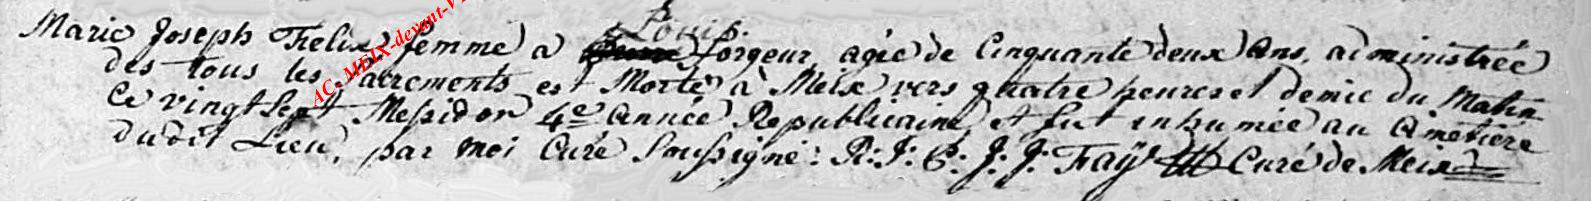 Louis
Marie Joseph Felix femme a Lorgeur, agée de Cinquante deux ans, administrée
des tous les sacrements est Morte à Meix vers quatre heures et demie du Matin
Ce vingt Sept Messidor 4e année Republicaine, et fut inhumée au Cimetière
dudit Lieu, par moi Curé Soussigné: R: J: J: J: Fay Curé de Meix
AC-MEIX-devant-V